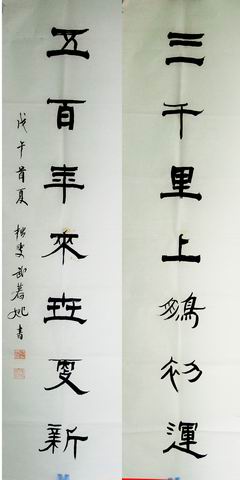 三千里上鵬初運
五百年來世更新
戊午首夏 書